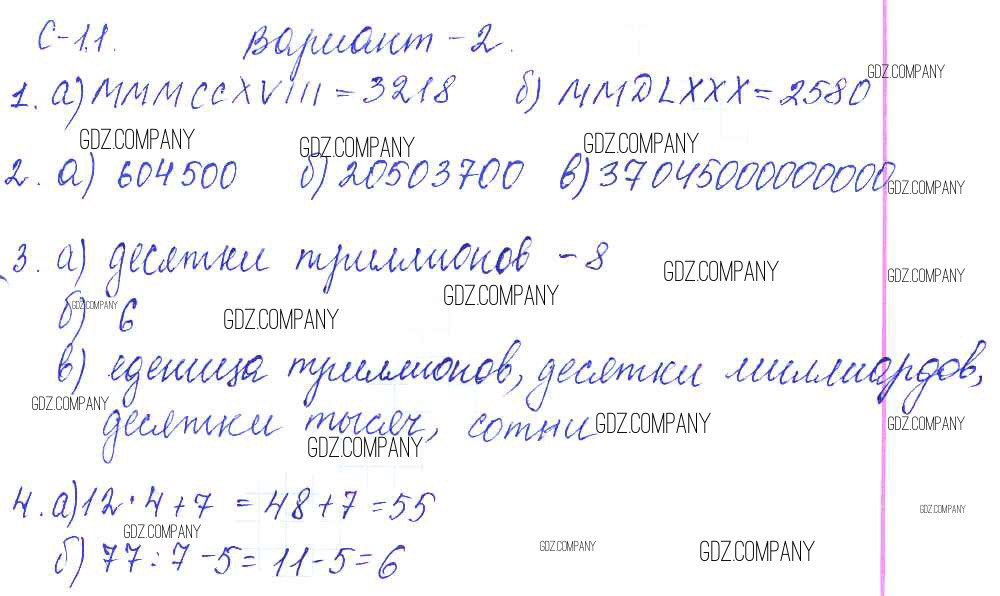 С-1.1. Вариант-2.
GDZ.COMPANY
1. а) MMMCCXVIII = 3218 б) MMDLXXX = 2580
GDZ.COMPANY GDZ.COMPANY GDZ.COMPANY
2. а) 604500 б) 20503700 в) 37045000000000
GDZ.COMPANY
3. а) десятки триллионов - 8
GDZ.COMPANY GDZ.COMPANY
GDZ.COMPANY
GDZ.COMPANY
б) 6
GDZ.COMPANY
в) еденица триллионов, десятки миллиардов,
GDZ.COMPANY
десятки тысяч, сотни
GDZ.COMPANY GDZ.COMPANY
GDZ.COMPANY
4. а) 12 · 4 + 7 = 48 + 7 = 55
GDZ.COMPANY
GDZ.COMPANY
б) 77 : 7 - 5 = 11 - 5 = 6
GDZ.COMPANY GDZ.COMPANY